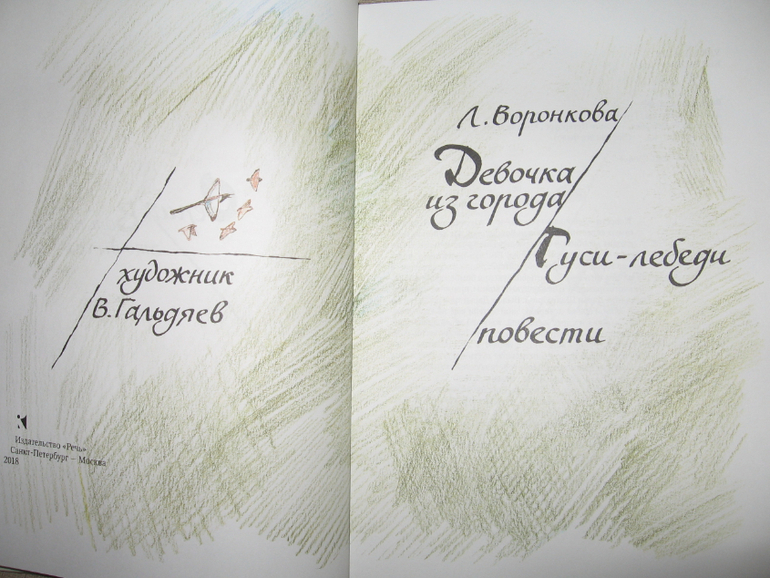 художник
В. Гальдяев
Издательство «Речь»
Санкт-Петербург – Москва
2018
Л. Воронкова
Девочка
из города
Гуси-лебеди
повести